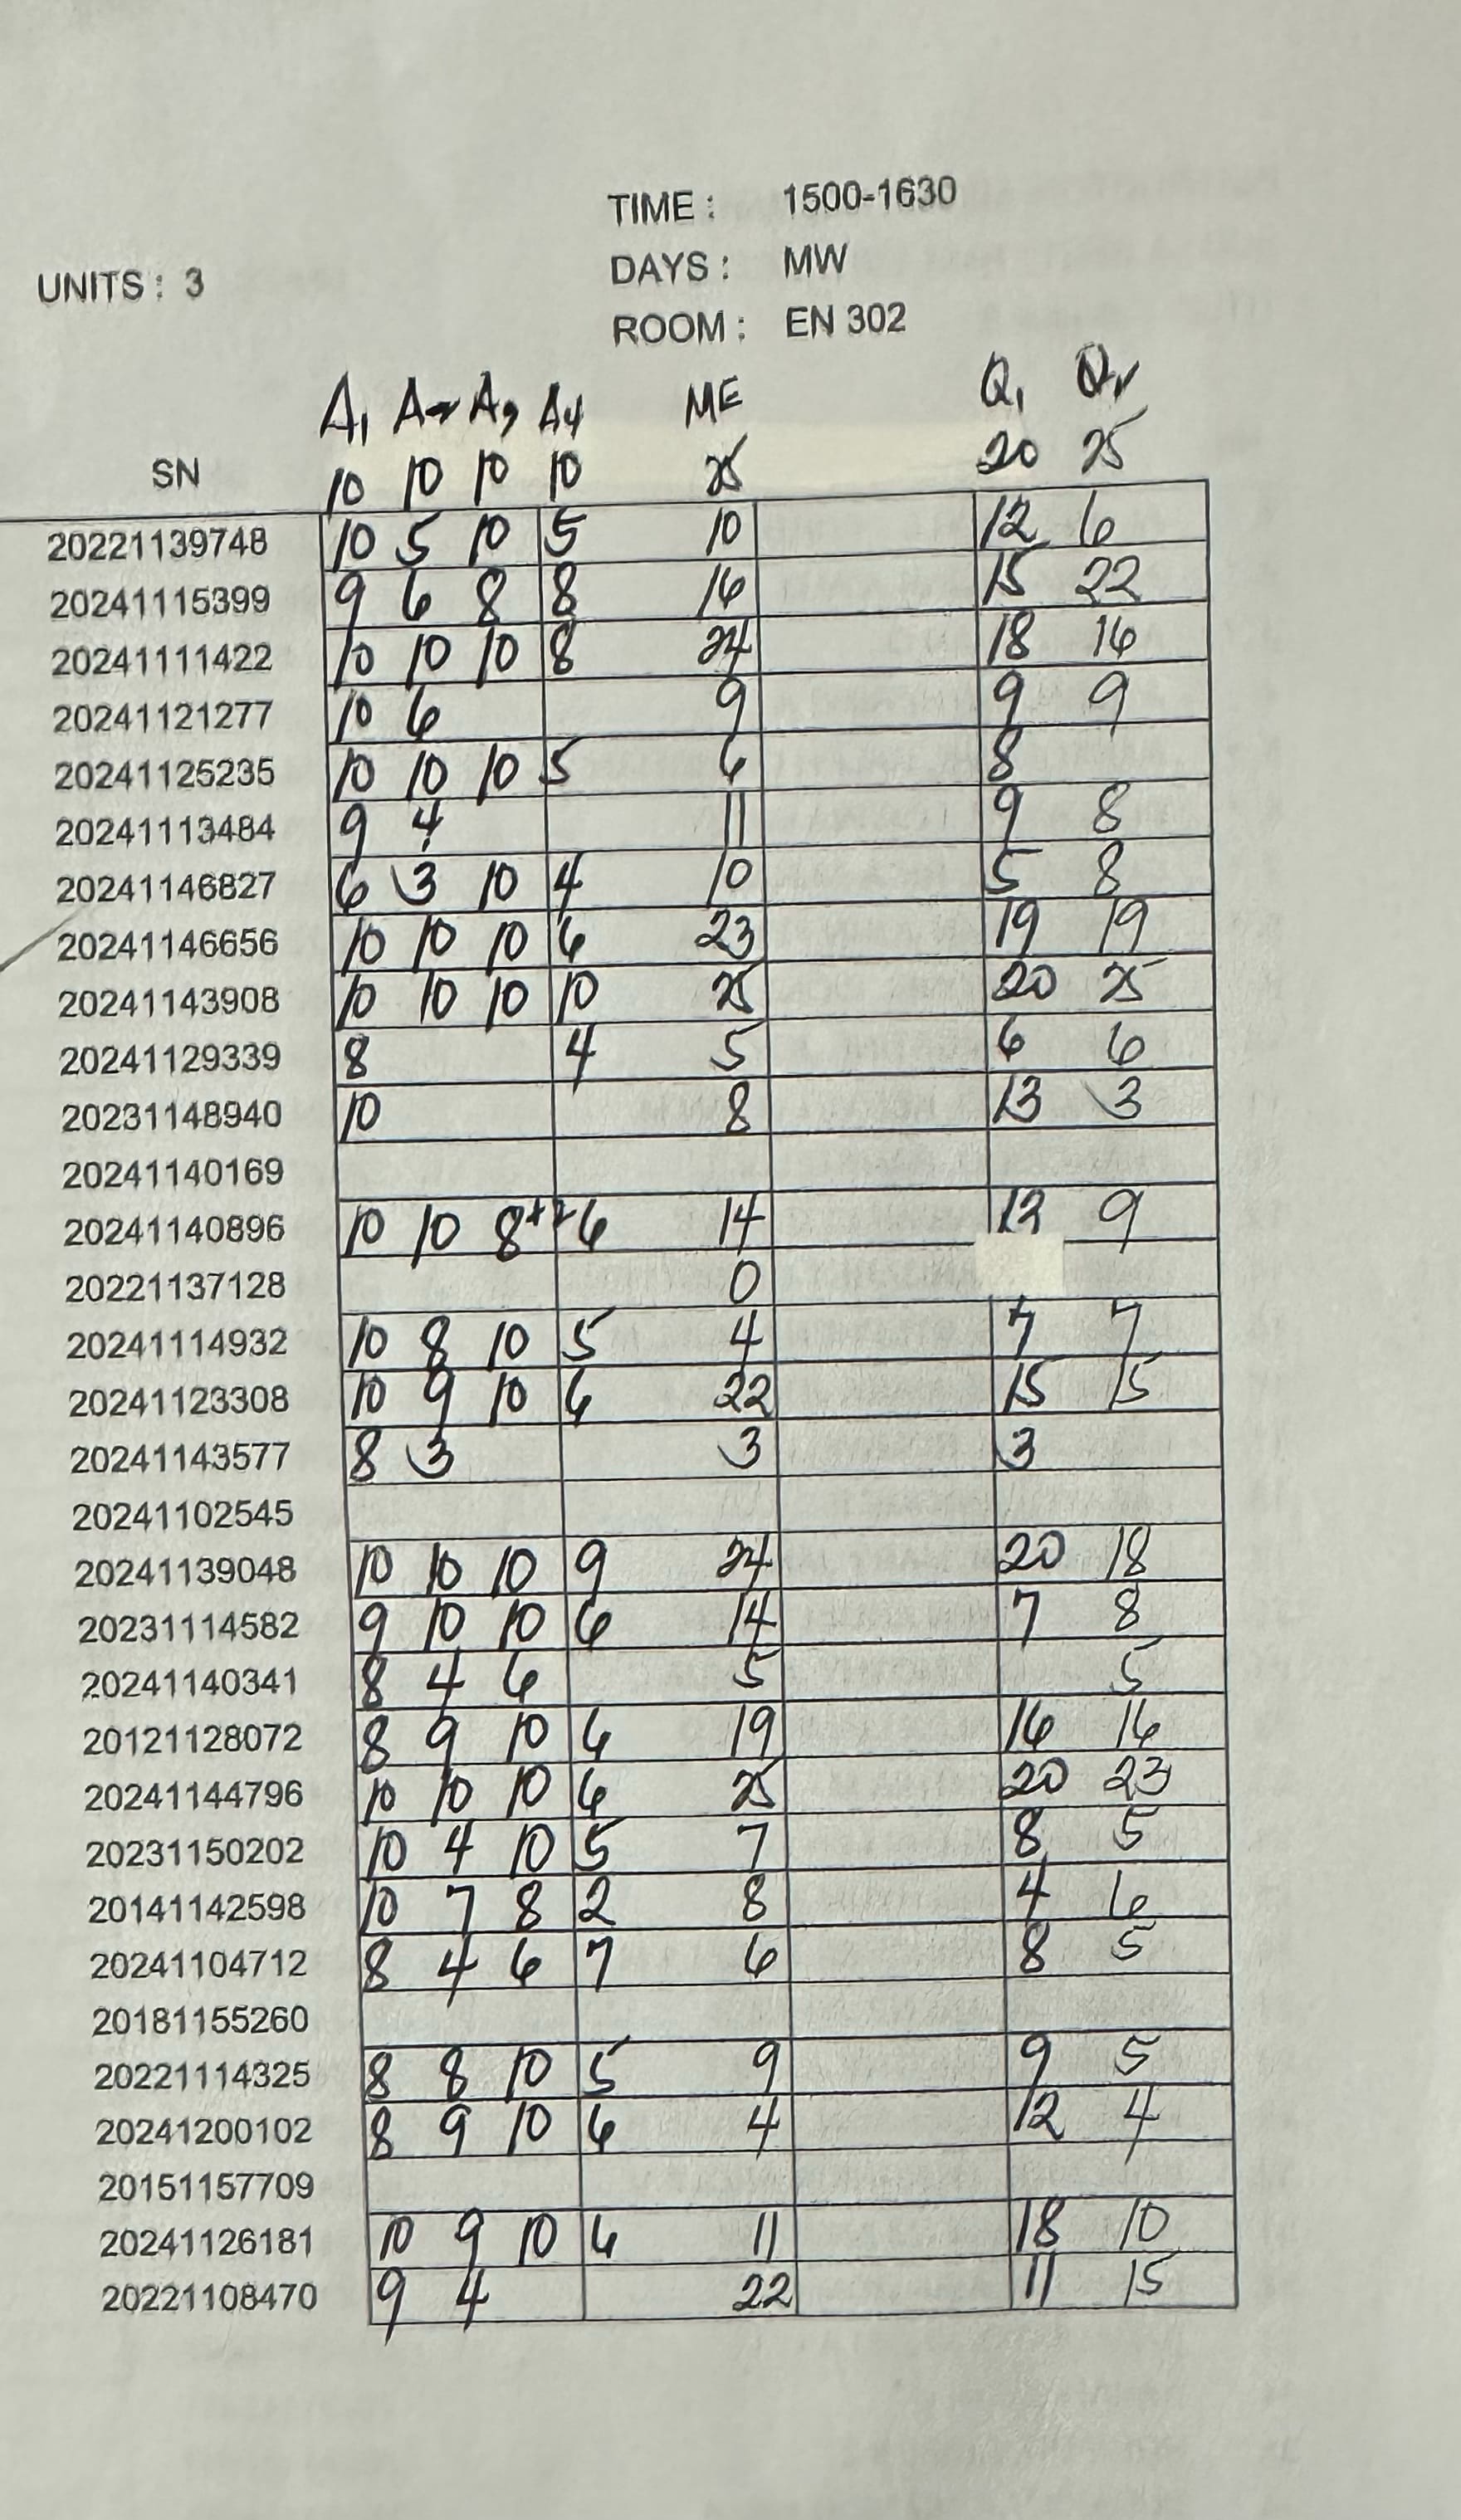 TIME : 1500-1630
UNITS : 3 DAYS : MW
ROOM : EN 302
A1 A2 A3 A4 ME Q1 Q2
SN 10 10 10 10 25 20 25
20221139748 10 5 10 5 10 12 6
20241115399 9 6 8 8 16 15 22
20241111422 10 10 10 8 24 18 16
20241121277 10 6 9 9 9
20241125235 10 10 10 5 6 8
20241113484 9 4 11 9 8
20241146827 6 3 10 4 10 5 8
20241146656 10 10 10 6 23 19 19
20241143908 10 10 10 10 25 20 25
20241129339 8 4 5 6 6
20231148940 10 8 13 3
20241140169
20241140896 10 10 8+2 6 14 12 9
20221137128 0
20241114932 10 8 10 5 4 7 7
20241123308 10 9 10 6 22 15 15
20241143577 8 3 3 3
20241102545
20241139048 10 10 10 9 24 20 18
20231114582 9 10 10 6 14 7 8
20241140341 8 4 6 5 5
20121128072 8 9 10 6 19 16 16
20241144796 10 10 10 6 25 20 23
20231150202 10 4 10 5 7 8 5
20141142598 10 7 8 2 8 4 6
20241104712 8 4 6 7 6 8 5
20181155260
20221114325 8 8 10 5 9 9 5
20241200102 8 9 10 6 4 12 4
20151157709
20241126181 10 9 10 6 11 18 10
20221108470 9 4 22 11 15